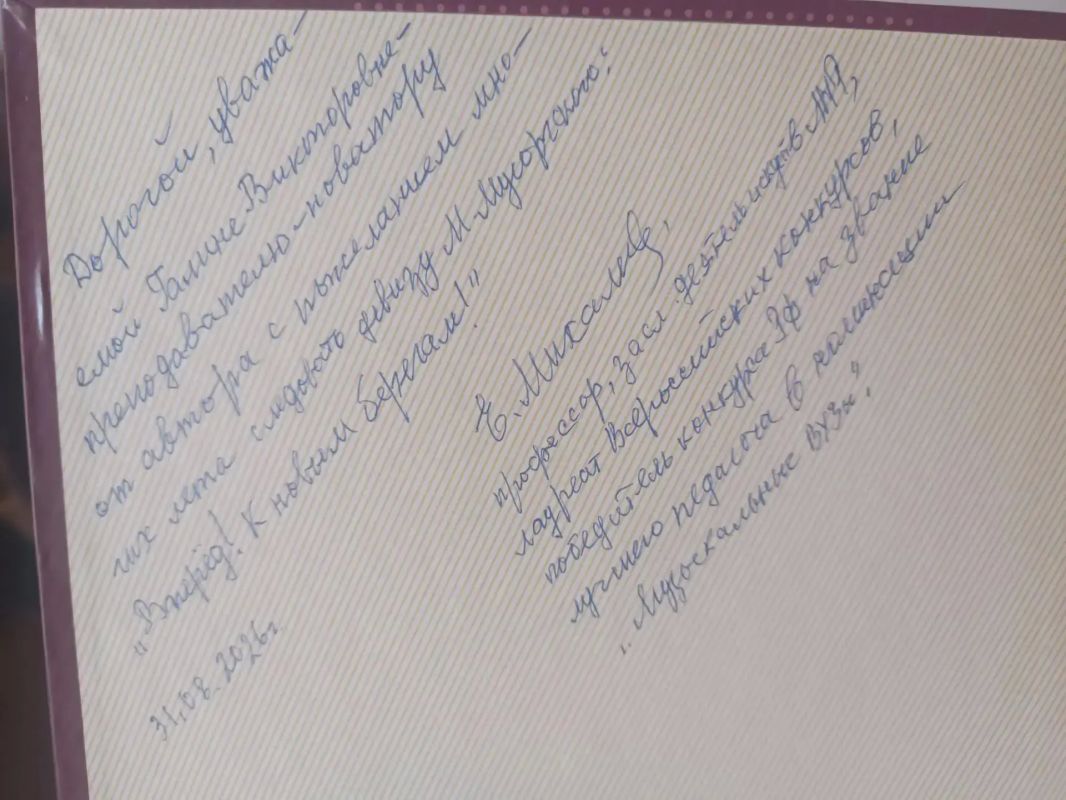 Дорогой, уважа-
емой Галине Викторовне-
преподавателю-новатору
от автора с пожеланием мно-
гих лета следовать девизу М. Мусоргского:
„Вперёд! К новым берегам!"
31.08.2026г.
Е. Михалева,
профессор, засл. деятель искусств
лауреат Всероссийских конкурсов,
победитель конкурса РФ на звание
лучшего педагога в номинации
„Музыкальные ВУЗы".